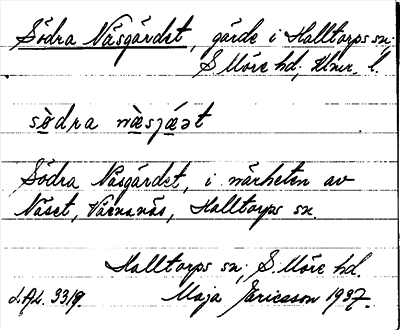 Södra Näsgärdet, gärde i Halltorps sn;
S Möre hd; Klmr. l.
södra näsjæ̀ət
Södra Näsgärdet, i närheten av
Näset, Värnanäs, Halltorps sn.
Halltorps sn; S. Möre hd.
L.A.L. 3319. Maja Ericsson 1937.